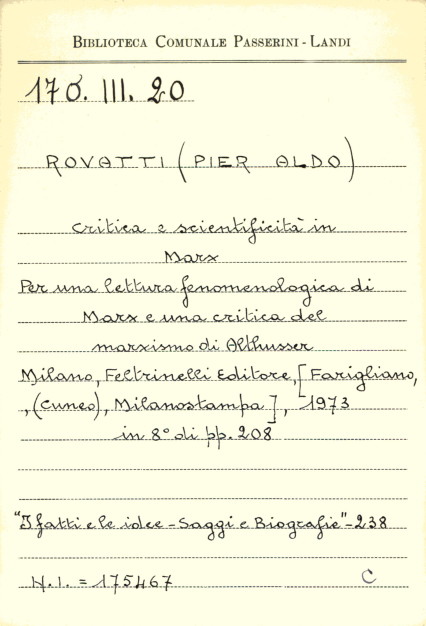 BIBLIOTECA COMUNALE PASSERINI - LANDI
170. III. 20
ROVATTI (PIER ALDO)
Critica e scientificità in
Marx
Per una lettura fenomenologica di
Marx e una critica del
marxismo di Althusser
Milano, Feltrinelli Editore, [Farigliano,
, (Cuneo), Milanostampa], 1973
in 8° di pp. 208
"I fatti e le idee - Saggi e Biografie" - 238
N.I. = 175467 C